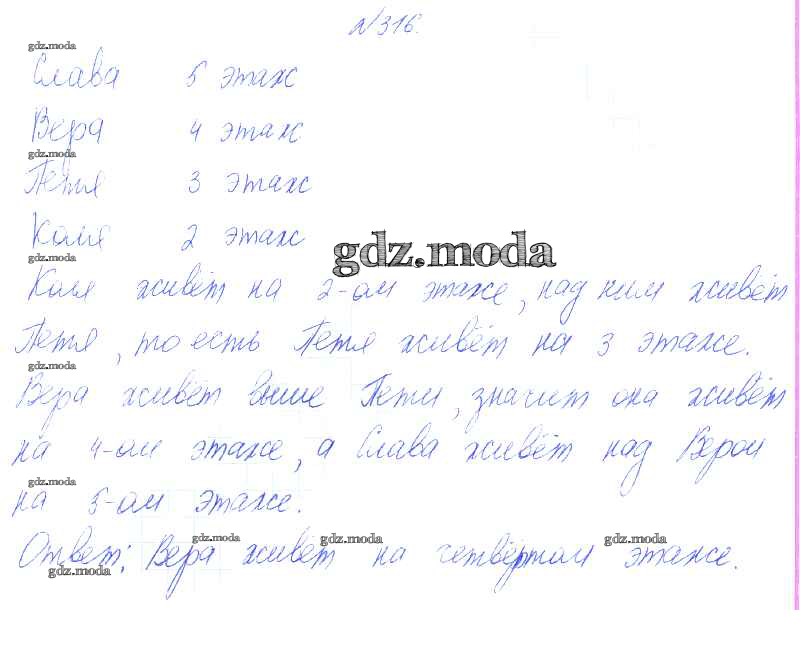 №316.
gdz.moda
Слава 5 этаж
Вера 4 этаж
gdz.moda
Петя 3 этаж
Коля 2 этаж
gdz.moda
gdz.moda
Коля живёт на 2-ом этаже, над ним живёт
Петя, то есть Петя живёт на 3 этаже.
gdz.moda
Вера живёт выше Пети, значит она живёт
на 4-ом этаже, а Слава живёт над Верой
gdz.moda
на 5-ом этаже.
gdz.moda gdz.moda gdz.moda
Ответ: Вера живёт на четвёртом этаже.
gdz.moda